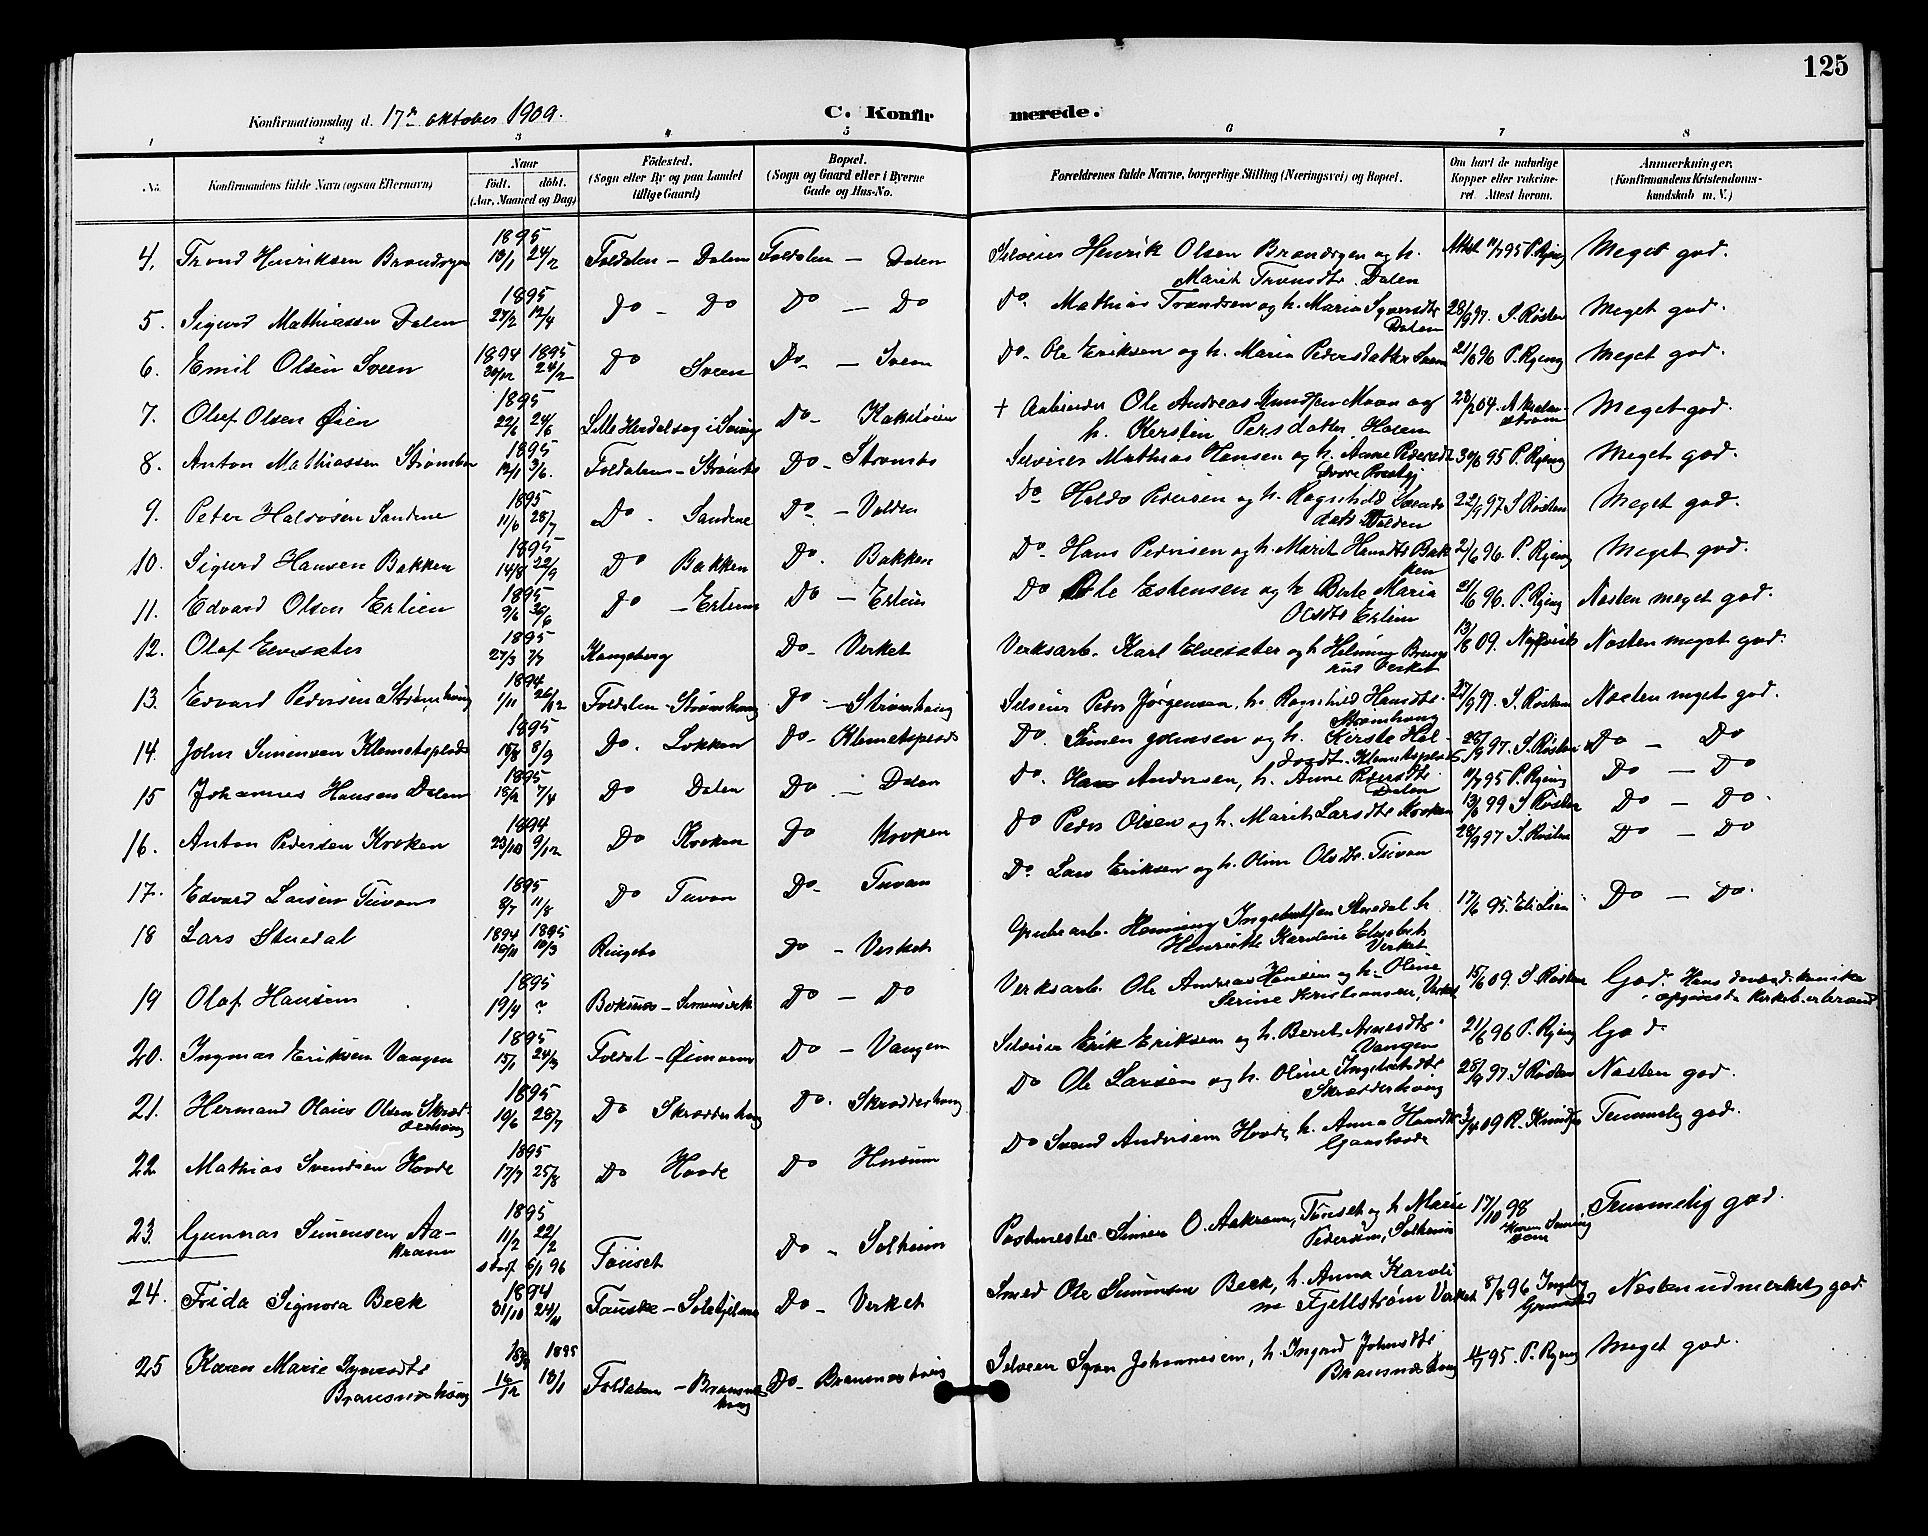 125
Konfirmationsdag d. 17de oktober 1909.
C. Konfirmerede.
1 2 3 4 5 6 7 8
No. Konfirmandens fulde Navn (ogsaa Efternavn) Naar födt. döbt. (Aar, Maaned og Dag) Födested. (Sogn eller By og paa Landet tillige Gaard) Bopæl. (Sogn og Gaard eller i Byerne Gade og Hus-No. Forældrenes fulde Navne, borgerlige Stilling (Næringsvei) og Bopæl. Om havt de naturlige Kopper eller vakcineret. Attest herom. Anmærkninger. (Konfirmandens Kristendomskundskab m. V.)
4. Trond Henriksen Brandsgen 1895 13/1 24/2 Foldalen - Dalen Foldalen - Dalen Selveier Henrik Olsen Brandsgen og h. Marit Trondsdtr. Dalen Attest 11/7 95 P. Ryeng Meget god.
5. Sigurd Mathiassen Dalen 1895 27/2 12/4 Do - Do Do - Do Do. Mathias Trondsen og h. Maria Syversdtr Dalen 28/9 97. S. Røsten Meget god.
6. Emil Olsen Sveen 1894 30/12 1895 24/2 Do Sveen Do - Sveen Do. Ole Eriksen og h. Maria Pedersdatter Sveen 21/6 96 P. Ryeng Meget god.
7. Oluf Olsen Øien 1895 22/5 24/6 Do - Kakeløien + Arbeider Ole Andreas Knudsen Moan og h. Kersten Persdatter 23/2 04. Meget god.
8. Anton Mathiassen Strømbu 1895 12/1 3/6. Foldalen - Strømbu Do - Strømbu Selveier Mathias Hansen og h. Anne Pedersdt 30/6 95 P. Ryeng Meget god.
9. Peter Halvorsen Sandene 1895 11/6 28/7 Do - Sandene Do - Volden Do Haldo Pedersen og h. Ragnhild Svendsdatt Volden 22/9 97 S. Røsten Meget god.
10. Sigurd Hansen Bakken 1895 14/8 22/9 Do Bakken Do. Bakken Do. Hans Pedersen og h. Marit Hansdtr Bakken 21/6 96. P. Ryeng Meget god.
11. Edvard Olsen Erlien 1895 9/6 30/6 Do - Erlien Do - Erlien Do Ole Estensen og h Berte Maria Olsdtr Erlien 21/6 96. P. Ryeng Næsten meget god.
12. Olaf Elvesæter 1895 27/3 7/7 Kongsberg Do - Verket Verksarb. Karl Elvesæter og h Helmine Verket 13/6 09. Næsten meget god.
13. Edvard Pedersen Strømhaug 1894 1/11 26/12 Foldalen - Strømhaug Do - Strømhaug Selveier Peder Jørgensen, h. Ragnhild Hansdtr. Strømhaug 27/9 97. S. Røsten Næsten meget god.
14. John Simensen Klemetsplads 1895 15/8 8/9 Do. Løkken Do - Klemetsplads Do. Simen Johnsen og h. Kirste Haldorsdt. Klemetsplads 28/9 97. S. Røsten Do - Do
15 Johannes Hansen Dalen 1895 18/2 7/4 Do Dalen Do - Dalen Do. Hans Andersen, h. Anne Pedersdtr. Dalen 11/7 95 P. Ryeng Do - Do
16. Anton Pedersen Kroken 1894 23/10 9/12 Do Kroken Do Kroken Do Peder Olsen og h. Marit Larsdtr Kroken 13/6 99 S. Røsten Do - Do.
17. Edvard Larsen Tuvan 1895 8/7 11/8 Do Tuvan Do - Tuvan Do. Lars Eriksen og h. Oline Olsdtr. Tuvan 28/9 97 S. Røsten Do - Do
18 Lars Stuedal 1894 10/11 1895 10/3 Ringebu Do - Verket Grubearb. Henning Ingebretsen Stuedal h Henriette Karoline Elisabet Verket 17/6 95. Do - Do.
19 Olaf Hansen 1895 19/4 ? Do - Do Verksarb. Ole Andreas Hansen og h. Oline Serine Kristiansen, Verket 15/6 09. S. Røsten God.
20. Ingmar Eriksen Vangen 1895 15/1 24/3 Foldal - Øimoen Do - Vangen Selveier Erik Eriksen og h. Beret Arnesdtr. Vangen 21/6 96 P. Ryeng God
21. Hermand Olaius Olsen Skrædderhaug 1895 19/6 28/7 Do Skrædderhaug Do. Skrædderhaug Do Ole Larsen og h. Oline Ingebretsdtr Skrædderhaug 28/9 97. S. Røsten Næsten god.
22 Mathias Svendsen Hovde 1895 17/7 25/8 Do Hovde Do Husum Do Svend Andersen Hovde, h. Anna Hansdtr Gaashovde 3/4 09 R. Knudsen Temmelig god.
23. Gunnar Simensen Aakrann 1895 11/2 22/2 stadf. 6/1 96 Tönset Do - Solheim Postmester Simen O. Aakrann, Tönset og h. Marie Pedersen, Solheim 17/10 98 Temmelig god.
24. Frida Signora Beck 1894 31/10 24/11 Do - Verket Smed Ole Simonsen Beck, h. Anna Karoline Fjellstrøm Verket 8/8 96 Næsten udmerket god
25 Karen Marie Syversdtr Brænsnæshaug 16/12 1895 13/1 Foldalen - Brænsnæshaug Do - Brænsnæshaug Selveier Syver Johannesen, h. Ingrid Johnsdtr Brænsnæshaug 11/7 95. P. Ryeng Meget god.